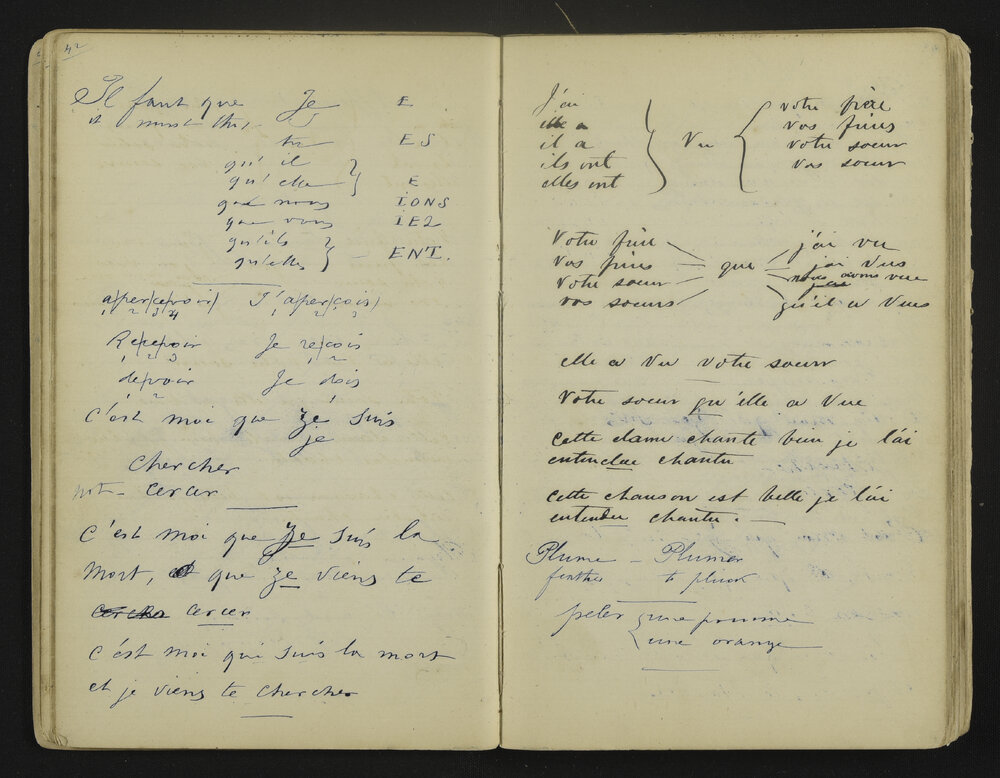 42
Il faut que Je E
it must that
tu ES
qu'il
qu'elle E
que nous IONS
que vous IEZ
qu'ils
qu'elles ENT.
aper/ce/voir J'aper/çois
1 2 3 4 1 2 3
Re/ce/voir Je re/çois
1 2 3 1 2
de/voir Je dois
2
C'est moi que ze suis
je
chercher
not - cercer
C'est moi que ze suis la
mort, que ze viens te
cercer
C'est moi qui suis la mort
et je viens te chercher
J'ai votre frère
elle a vos frères
il a Vu votre soeur
ils ont vos soeur
elles ont
Votre frère j'ai vu
Vos frères que j'ai vus
Votre soeur nous avons vue
vos soeurs qu'il a vues
elle a vu votre soeur
Votre soeur qu'elle a vue
Cette dame chante bien je l'ai
entendue chanter
Cette chanson est belle je l'ai
entendu chanter. —
Plume — Plumer
feather to pluck
peler une pomme
une orange